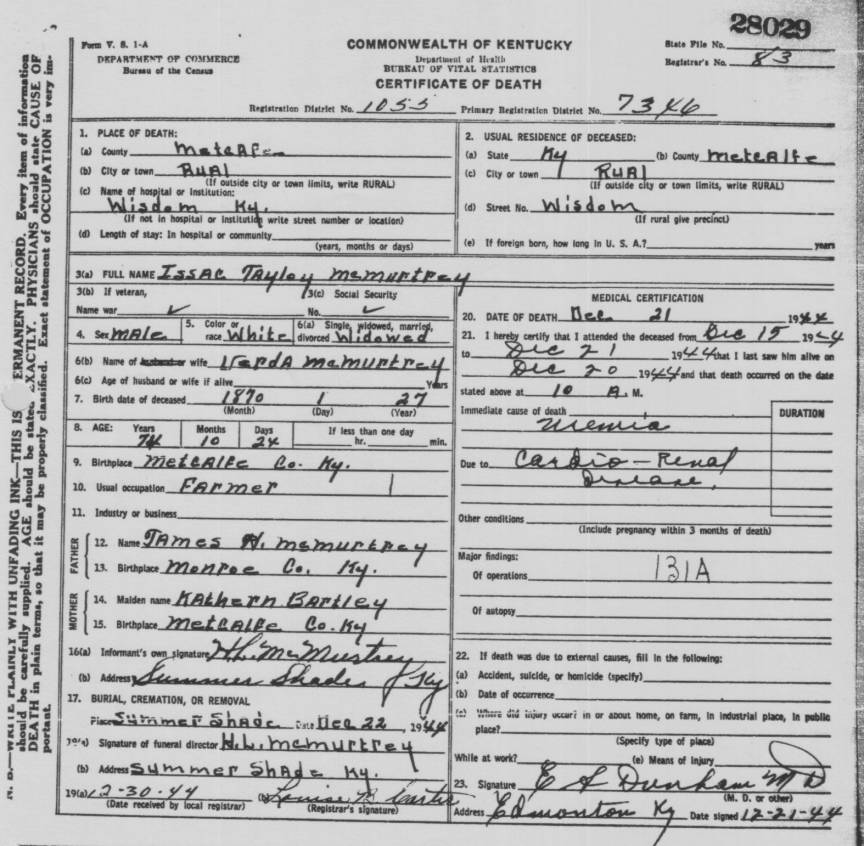 28029
Form V. S. 1-A
DEPARTMENT OF COMMERCE
Bureau of the Census
COMMONWEALTH OF KENTUCKY
Department of Health
BUREAU OF VITAL STATISTICS
CERTIFICATE OF DEATH
State File No.
Registrar's No. 83
Registration District No. 1055 Primary Registration District No. 7346
N. B.—WRITE PLAINLY WITH UNFADING INK—THIS IS ERMANENT RECORD. Every item of information
should be carefully supplied. AGE should be stated EXACTLY. PHYSICIANS should state CAUSE OF
DEATH in plain terms, so that it may be properly classified. Exact statement of OCCUPATION is very im-
portant.
1. PLACE OF DEATH:
(a) County Metcalfe
(b) City or town Rural
(If outside city or town limits, write RURAL)
(c) Name of hospital or institution:
Wisdom Ky.
(If not in hospital or institution write street number or location)
(d) Length of stay: In hospital or community
(years, months or days)
2. USUAL RESIDENCE OF DECEASED:
(a) State Ky (b) County Metcalfe
(c) City or town Rural
(If outside city or town limits, write RURAL)
(d) Street No. Wisdom
(If rural give precinct)
(e) If foreign born, how long in U. S. A.? years
3(a) FULL NAME Issac Tayloy McMurtrey
3(b) If veteran, 3(c) Social Security
Name war ✓ No. ✓
4. Sex Male 5. Color or race White 6(a) Single, widowed, married, divorced Widowed
6(b) Name of husband or wife McMurtrey
6(c) Age of husband or wife if alive Years
7. Birth date of deceased 1870 1 27
(Month) (Day) (Year)
8. AGE: Years Months Days If less than one day
74 10 24 hr. min.
9. Birthplace Metcalfe Co. Ky.
10. Usual occupation Farmer
11. Industry or business
FATHER
12. Name James H. McMurtrey
13. Birthplace Monroe Co. Ky.
MOTHER
14. Maiden name Kathern Bartley
15. Birthplace Metcalfe Co. Ky
16(a) Informant's own signature H.L. McMurtrey
(b) Address Summer Shade Ky
17. BURIAL, CREMATION, OR REMOVAL
Place Summer Shade Date Dec 22, 1944
(a) Signature of funeral director H.L. McMurtrey
(b) Address Summer Shade Ky.
19(a) 12-30-44 (b) Louise B. Carter
(Date received by local registrar) (Registrar's signature)
MEDICAL CERTIFICATION
20. DATE OF DEATH Dec 21 1944
21. I hereby certify that I attended the deceased from Dec 15 1944
to Dec 21 1944 that I last saw him alive on
Dec 20 1944 and that death occurred on the date
stated above at 10 A. M.
Immediate cause of death DURATION
Uremia
Due to Cardio-Renal
Disease,
Other conditions
(Include pregnancy within 3 months of death)
Major findings:
Of operations 131A
Of autopsy
22. If death was due to external causes, fill in the following:
(a) Accident, suicide, or homicide (specify)
(b) Date of occurrence
(c) Where did injury occur? in or about home, on farm, in industrial place, in public
place?
(Specify type of place)
While at work? (e) Means of injury
23. Signature E S Dunham MD
(M. D. or other)
Address Edmonton Ky Date signed 12-21-44